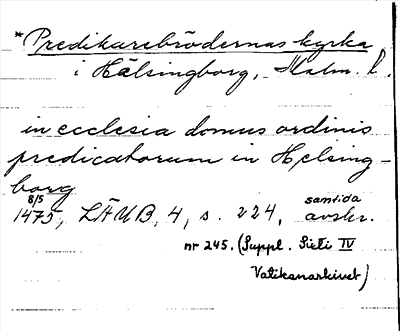 * Predikarebrödernas kyrka
i Hälsingborg, Malm. l.
in ecclesia domus ordinis
predicatorum in Helsing-
borg
8/5 1475, LÄUB, 4, s. 224, samtida avskr.
nr 245. (Suppl. Sixti IV
Vatikanarkivet)